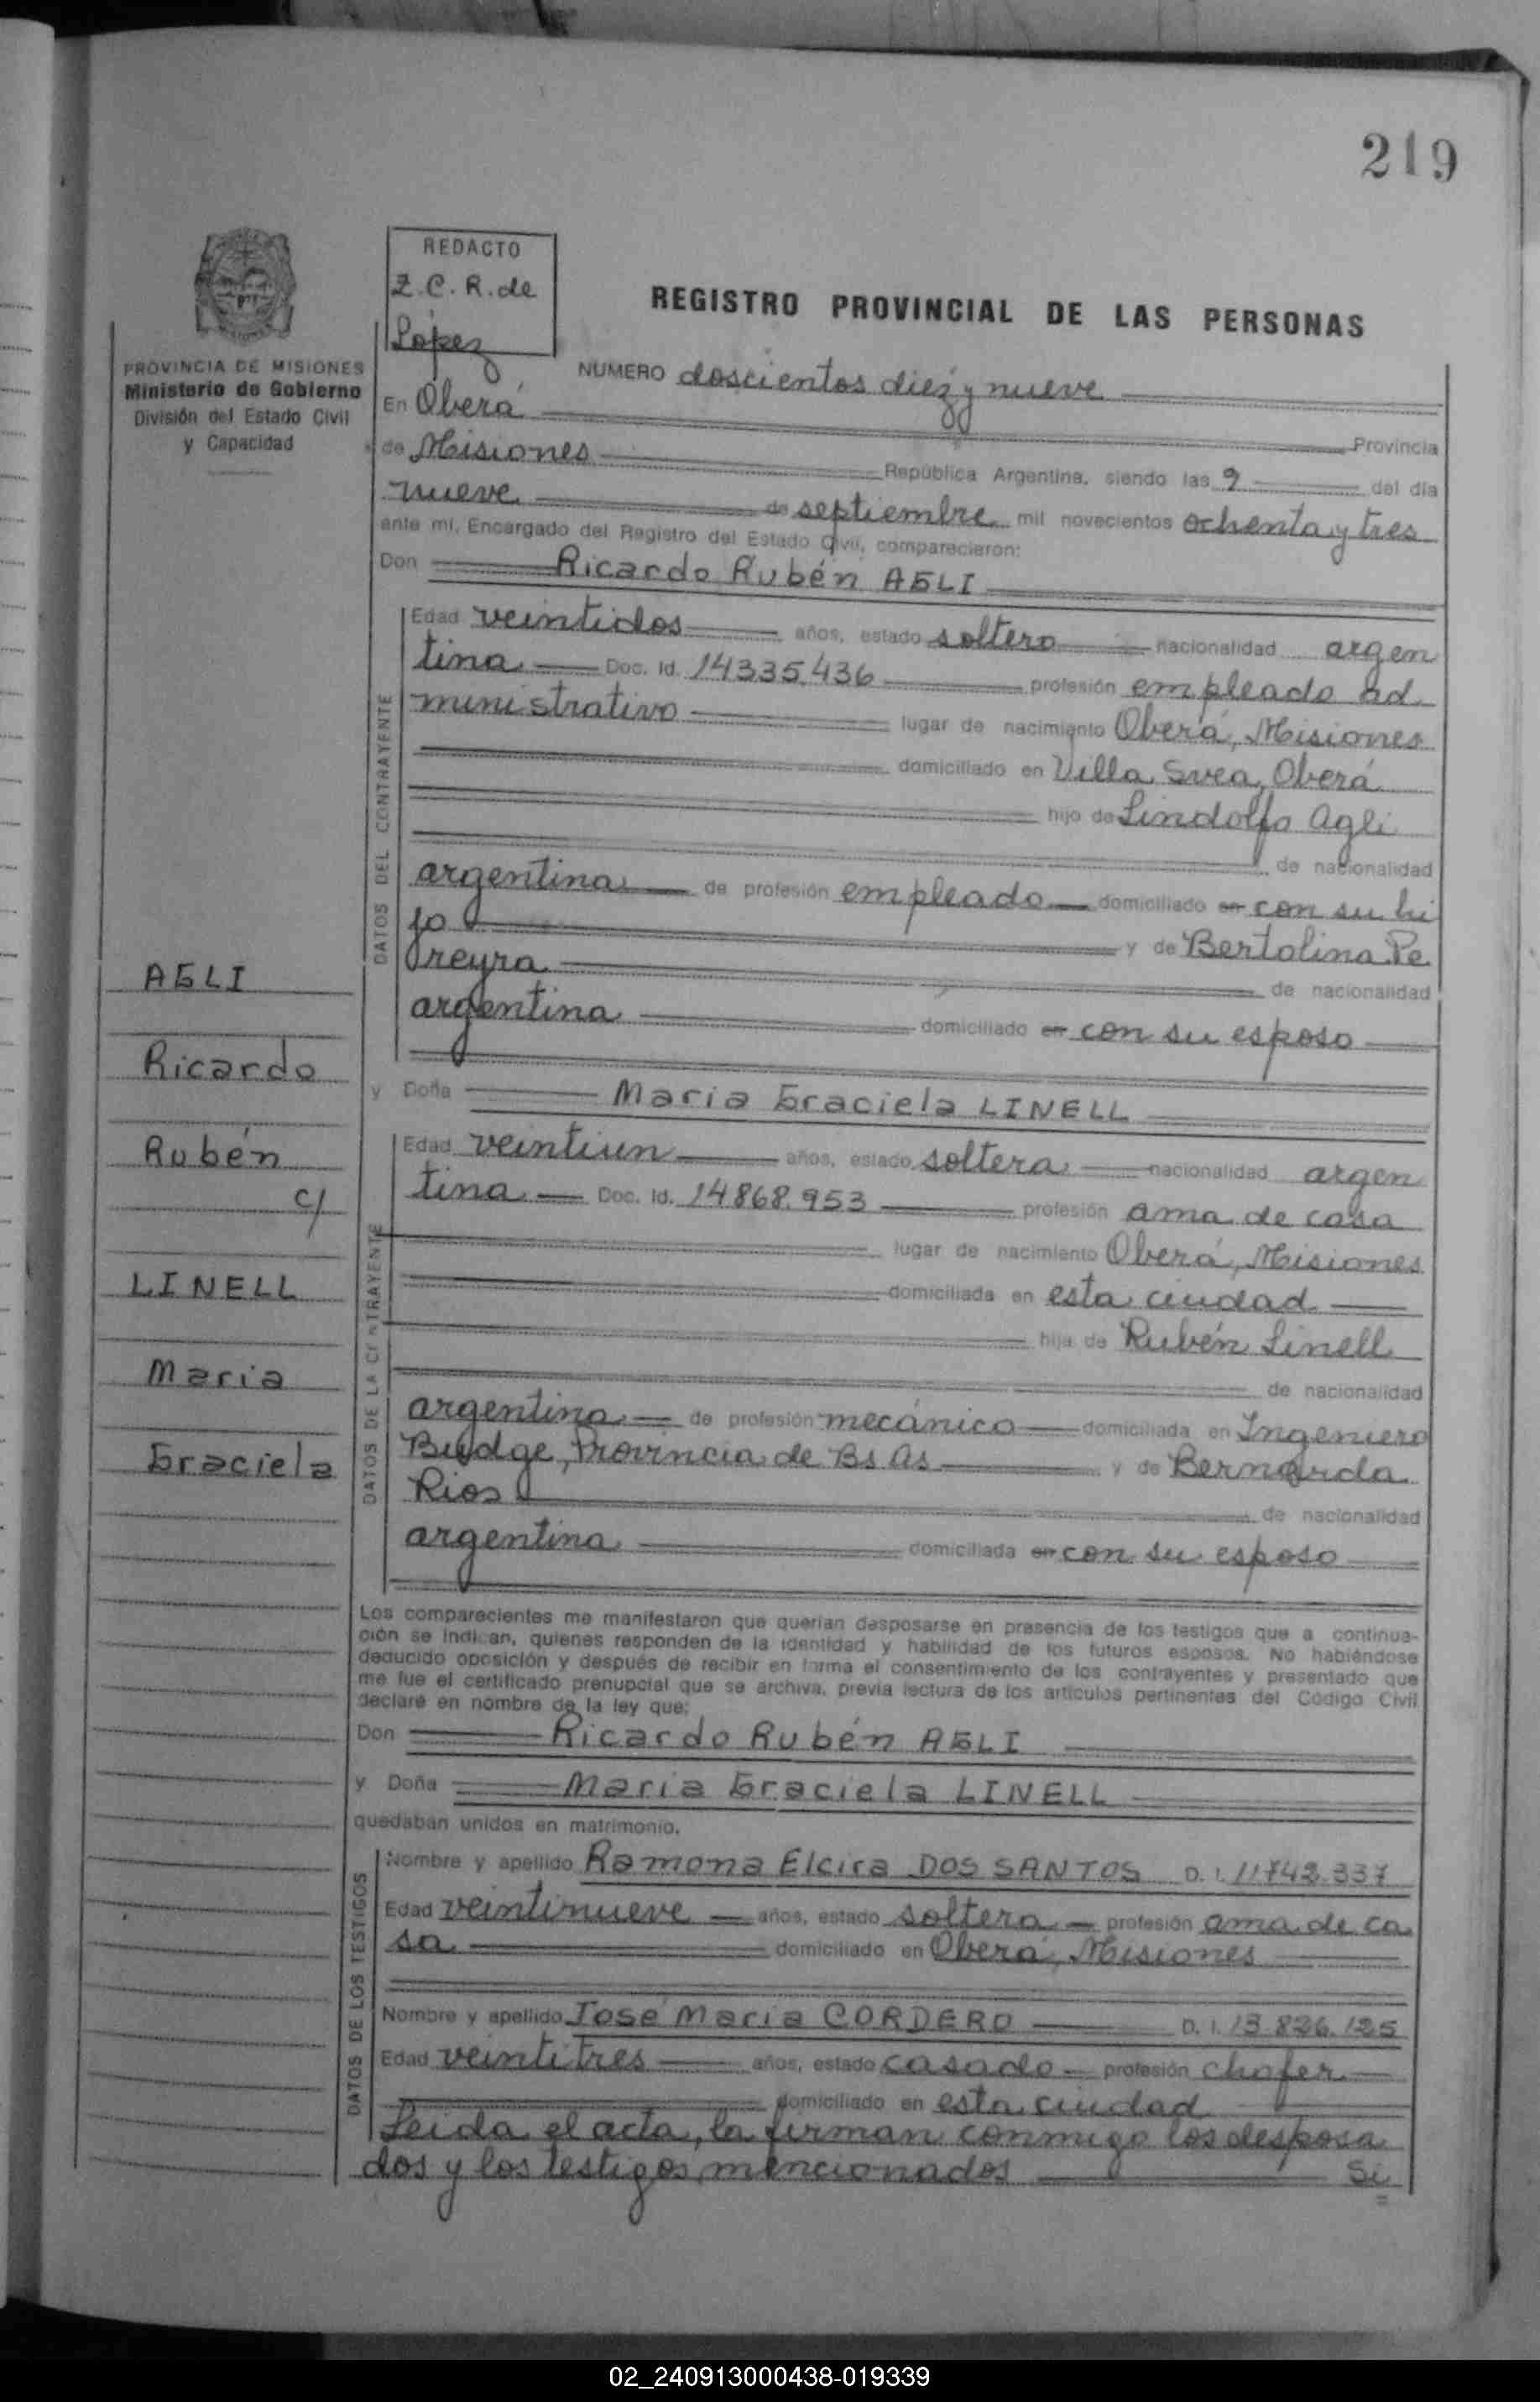 219
REDACTO
Z.C.R. de
López
REGISTRO PROVINCIAL DE LAS PERSONAS
PROVINCIA DE MISIONES
Ministerio de Gobierno
División del Estado Civil
y Capacidad
NUMERO doscientos diez y nueve
En Oberá Provincia
de Misiones República Argentina, siendo las 9 del día
nueve de septiembre mil novecientos ochenta y tres
ante mí, Encargado del Registro del Estado Civil, comparecieron:
Don Ricardo Rubén AGLI
DATOS DEL CONTRAYENTE
Edad veintidos años, estado soltero nacionalidad argen
tina Doc. Id. 14335.436 profesión empleado ad
ministrativo lugar de nacimiento Oberá, Misiones
domiciliado en Villa Svea, Oberá
hijo de Lindolfo Agli
de nacionalidad
argentina de profesión empleado domiciliado en con su hi
jo y de Bertolina Pe
reyra de nacionalidad
argentina domiciliado en con su esposo
y Doña Maria Graciela LINELL
DATOS DE LA CONTRAYENTE
Edad veintiun años, estado soltera nacionalidad argen
tina Doc. Id. 14868.953 profesión ama de casa
lugar de nacimiento Oberá, Misiones
domiciliada en esta ciudad
hija de Rubén Linell
de nacionalidad
argentina de profesión mecánico domiciliada en Ingeniero
Budge, Provincia de Bs As y de Bernarda
Rios de nacionalidad
argentina domiciliada en con su esposo
AGLI
Ricardo
Rubén
c/
LINELL
Maria
Graciela
Los comparecientes me manifestaron que querían desposarse en presencia de los testigos que a continua-
ción se indican, quienes responden de la identidad y habilidad de los futuros esposos. No habiéndose
deducido oposición y después de recibir en forma el consentimiento de los contrayentes y presentado que
me fue el certificado prenupcial que se archiva, previa lectura de los artículos pertinentes del Código Civil
declaré en nombre de la ley que:
Don Ricardo Rubén AGLI
y Doña Maria Graciela LINELL
quedaban unidos en matrimonio.
DATOS DE LOS TESTIGOS
Nombre y apellido Ramona Elcira DOS SANTOS D. I. 11743.337
Edad veintinueve años, estado soltera profesión ama de ca
sa domiciliado en Oberá, Misiones
Nombre y apellido José Maria CORDERO D. I. 13.826.125
Edad veintitres años, estado casado profesión chofer
domiciliado en esta ciudad
Leida el acta, la firman conmigo los desposa
dos y los testigos mencionados Si
02_240913000438-019339